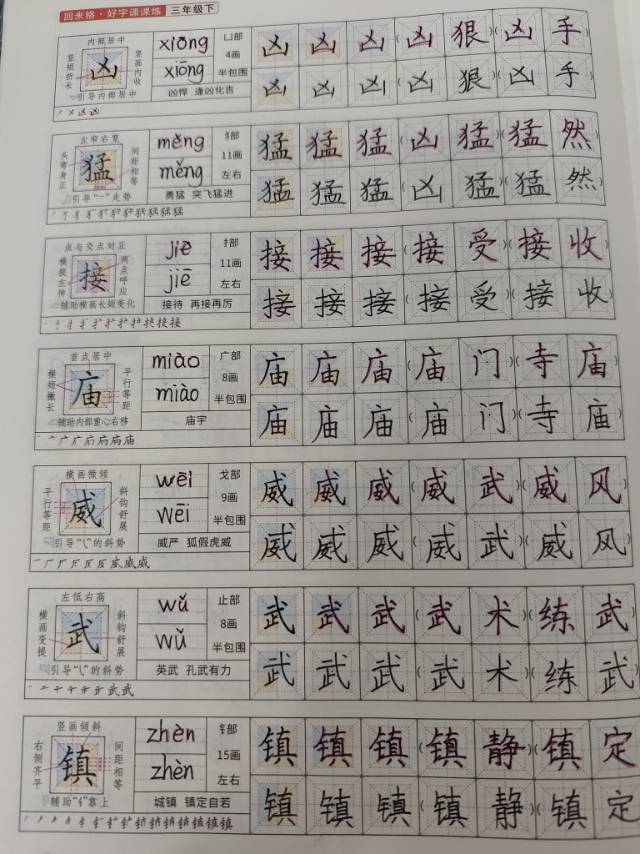 回米格·好字课课练 三年级下
内部居中
竖短折长 凶 竖画内收
引导内部居中
xiōng 凵部
xiōng 4画
半包围
凶悍 逢凶化吉
凶 凶 凶 (凶 狠)(凶 手)
凶 凶 凶 (凶 狠)(凶 手)
左窄右宽
头弯身正 猛 间距相等
引导"一"走势
měng 犭部
měng 11画
左右
勇猛 突飞猛进
猛 猛 猛 (凶 猛)(猛 然)
猛 猛 猛 (凶 猛)(猛 然)
点与交点对正
接 两点呼应
辅助横画长短变化
jiē 扌部
jiē 11画
左右
接待 再接再厉
接 接 接 (接 受)(接 收)
接 接 接 (接 受)(接 收)
首点居中
横短撇长 庙 平行等距
辅助内部重心右移
miào 广部
miào 8画
半包围
庙宇
庙 庙 庙 (庙 门)(寺 庙)
庙 庙 庙 (庙 门)(寺 庙)
横画微倾
平行等距 威 斜钩舒展
引导"㇂"的斜势
wēi 戈部
wēi 9画
半包围
威严 狐假虎威
威 威 威 (威 武)(威 风)
威 威 威 (威 武)(威 风)
左低右高
横画变换 武 斜钩舒展
引导"㇂"的斜势
wǔ 止部
wǔ 8画
半包围
英武 孔武有力
武 武 武 (武 术)(练 武)
武 武 武 (武 术)(练 武)
竖画倾斜
右侧齐平 镇 间距相等
辅助"钅"靠上
zhèn 钅部
zhèn 15画
左右
城镇 镇定自若
镇 镇 镇 (镇 静)(镇 定)
镇 镇 镇 (镇 静)(镇 定)